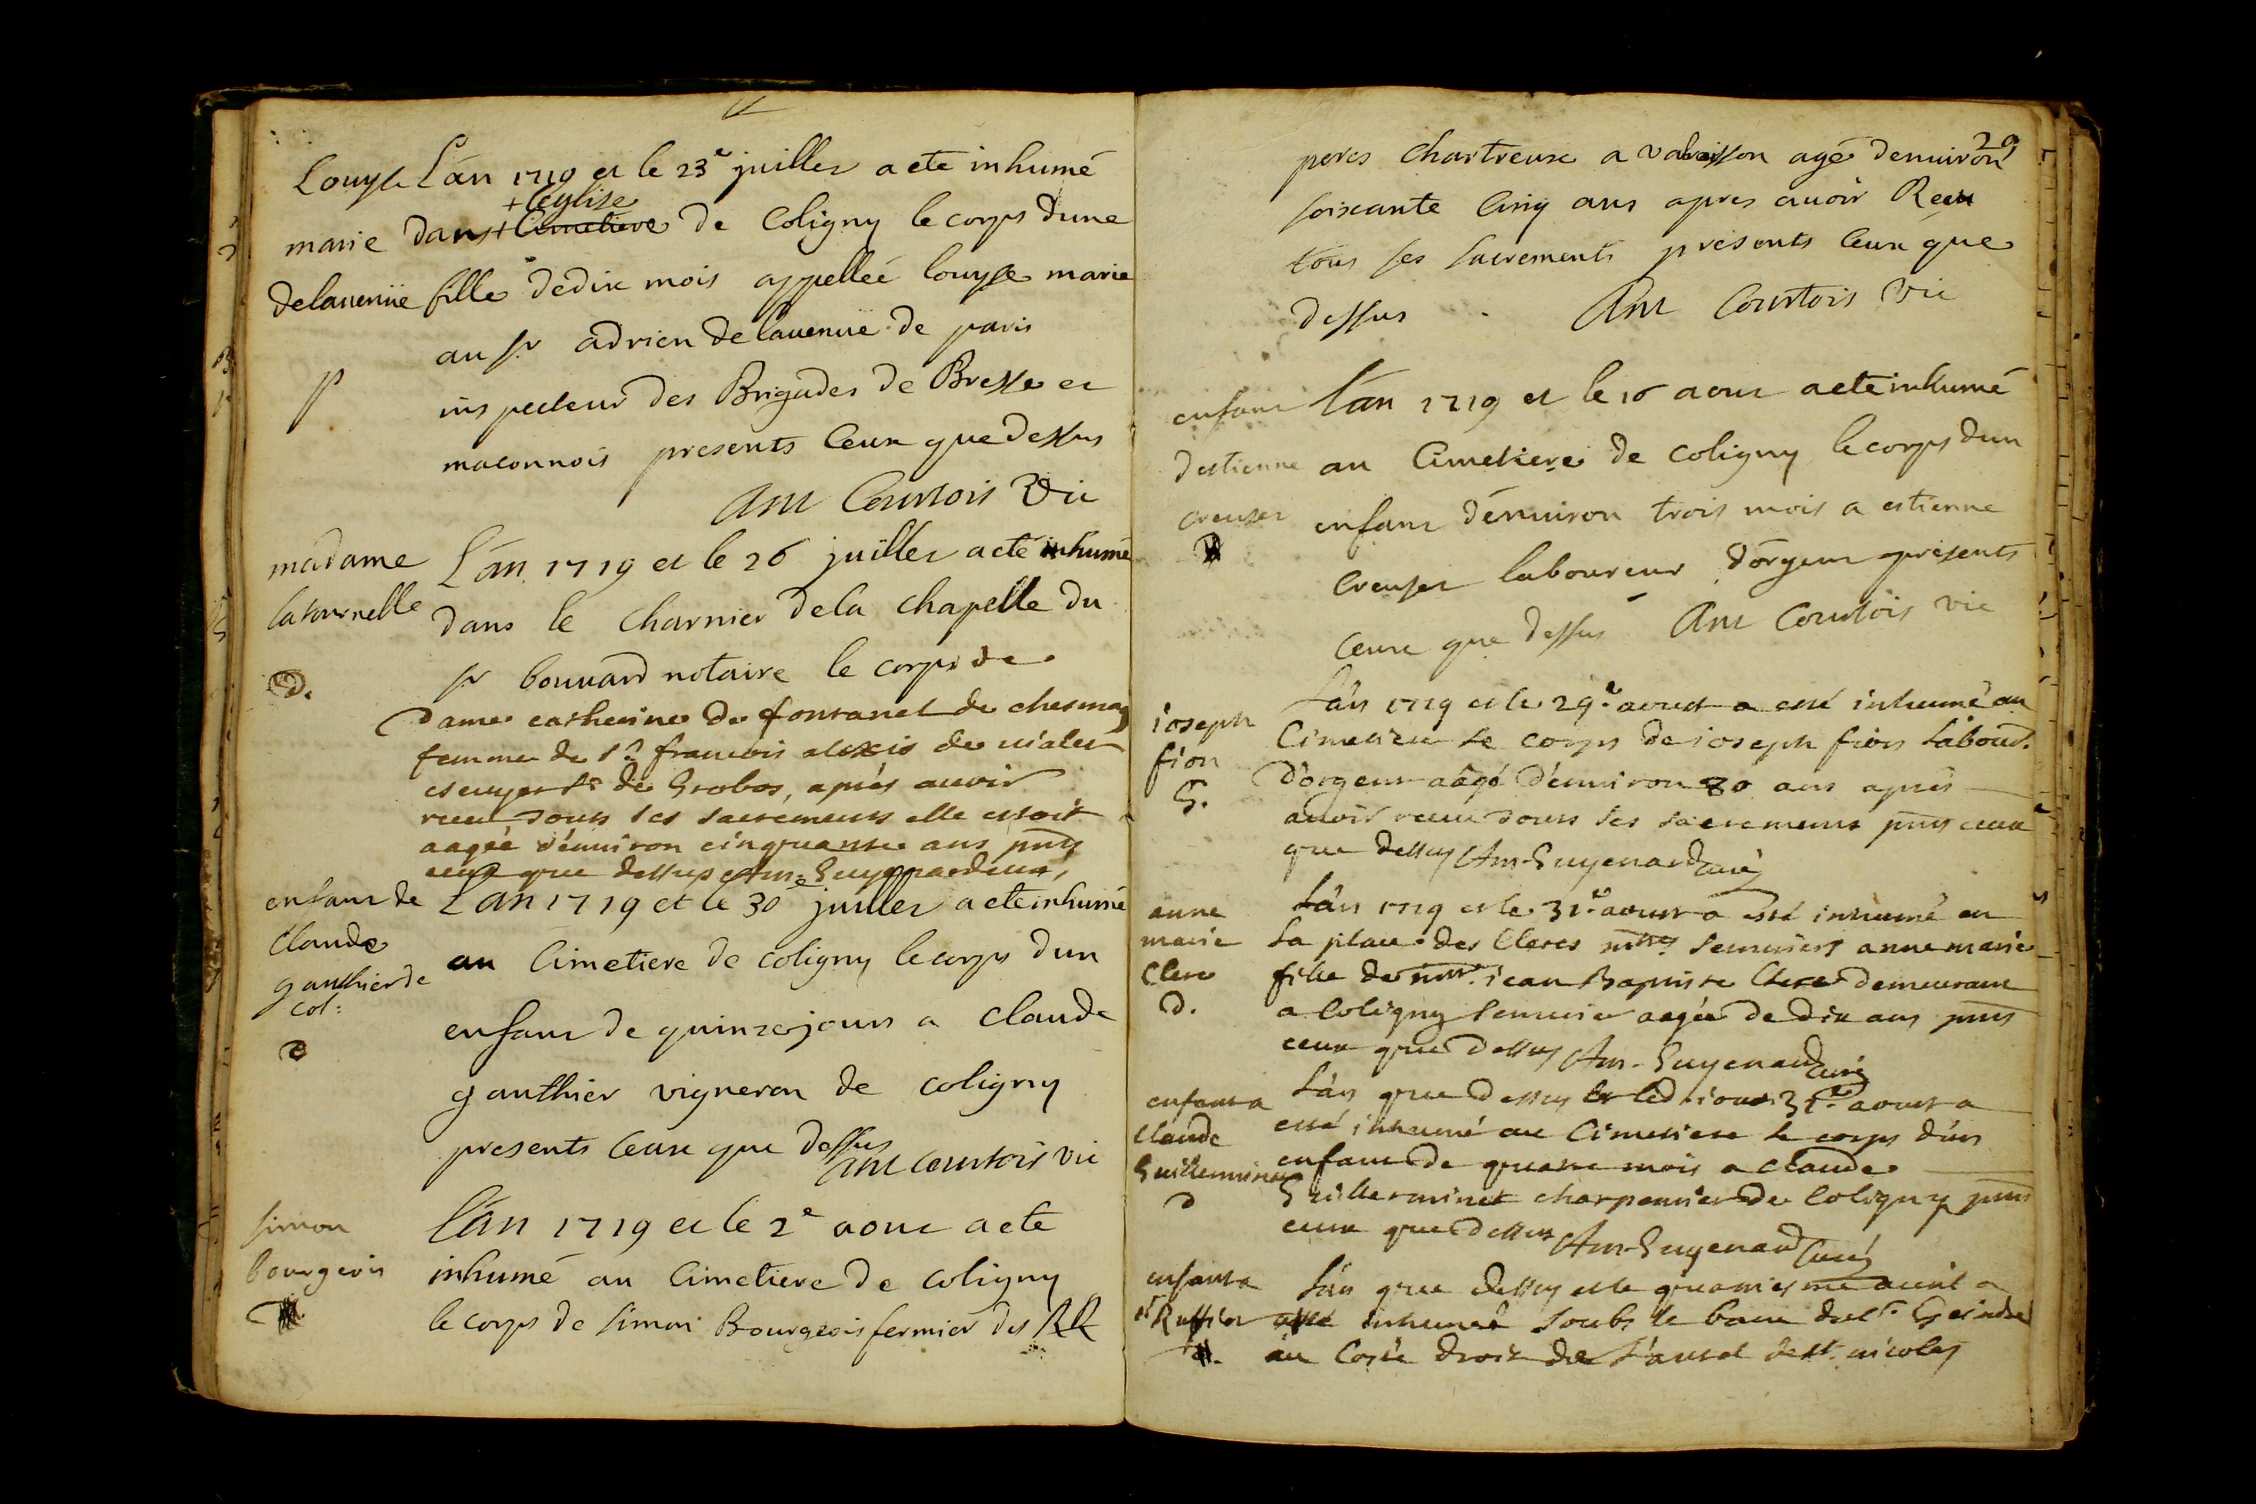 Louyse
marie
delauenüe
p
L'an 1719 et le 23e juillet a ete inhumé
+ l'eglise
dans + Cimetiere de Coligny le corps dune
fille de dix mois appelleé louyse marie
au sr adrien delauenüe de paris
inspecteur des Brigades de Bresse et
maconnois presents Ceux que dessus
Ant Courtois Vic
madame
latournelle
D.
L'an 1719 et le 26 juillet a ete inhumé
dans le Charnier dela Chapelle du
sr bouuard notaire le corps de
dame catherine de fontanet de chesmay
femme de sr francois alexis de vialet
escuyer sr de Grobos, aprés auoir
receu tous ses sacrements elle estoit
aagée d'enuiron cinquante ans pnts
ceux que dessus Ant Guyenard curé
enfant de
Claude
gauthier de
Col:
D
L'an 1719 et le 30e juillet a ete inhumé
au Cimetiere de Coligny le corps dun
enfant de quinze jours a Claude
gauthier vigneron de Coligny
presents Ceux que dessus
Ant Courtois vic
simon
bourgeois
L'an 1719 et le 2e aout a ete
inhumé au Cimetiere de Coligny
le corps de simon Bourgeois fermier des RR
29
peres Chartreux a agé denuiron
soixante Cinq ans apres auoir Receu
tous ses sacrements presents Ceux que
dessus . Ant Courtois Vic
enfant
destienne
creuset
L'an 1719 et le 16 aout a ete inhumé
au Cimetiere de Coligny le corps dun
enfant d'enuiron trois mois a estienne
Creuset laboureur d'orgeur presents
Ceux que dessus Ant Courtois vic
ioseph
fion
G.
L'an 1719 et le 29e aoust a esté inhumé au
Cimetiere le corps de ioseph fion labour.
d'orgeur aagé d'enuiron 80 ans aprés
auoir receu tous ses sacrements pnts ceux
que dessus Ant Guyenard curé
anne
marie
Clerc
D.
L'an 1719 et le 31e aoust a esté inhumé en
la place des Clercs anne marie
fille de mtre iean Baptiste Clerc demeurant
a Coligny aagée de dix ans pnts
ceux que dessus Ant Guyenard curé
enfant a
Claude
Guilleminet
D
L'an que dessus et led iour 31e aoust a
esté inhumé au Cimetiere le corps d'un
enfant de quatre mois a Claude
Guilleminet charpentier de Coligny pnts
ceux que dessus Ant Guyenard Curé
enfant a
sr Ruffier
L'an que dessus et le
esté inhumé soubs le banc du sr
au Costé droit de l'autel de st nicolas